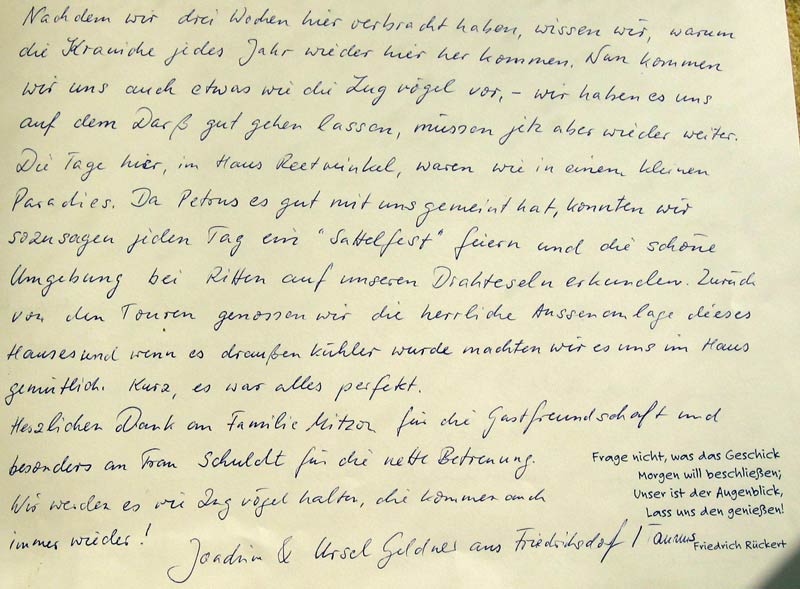 Nachdem wir drei Wochen hier verbracht haben, wissen wir, warum
die Kraniche jedes Jahr wieder hier her kommen. Nun kommen
wir uns auch etwas wie die Zug vögel vor, – wir haben es uns
auf dem Darß gut gehen lassen, müssen jetz aber wieder weiter.
Die Tage hier, im Haus Reetwinkel, waren wie in einem kleinen
Paradies. Da Petrus es gut mit uns gemeint hat, konnten wir
sozusagen jeden Tag ein "Sattelfest" feiern und die schöne
Umgebung bei Ritten auf unseren Drahteseln erkunden. Zurück
von den Touren genossen wir die herrliche Aussenanlage dieses
Hauses und wenn es draußen kühler wurde machten wir es uns im Haus
gemütlich. Kurz, es war alles perfekt.
Herzlichen Dank an Familie Mitzon für die Gastfreundschaft und
besonders an Frau Schuldt für die nette Betreuung.
Wir werden es wie Zug vögel halten, die kommen auch
immer wieder!
Joachim & Ursel Geldner aus Friedrichsdorf / Taunus
Frage nicht, was das Geschick
Morgen will beschließen;
Unser ist der Augenblick,
Lass uns den genießen!
Friedrich Rückert